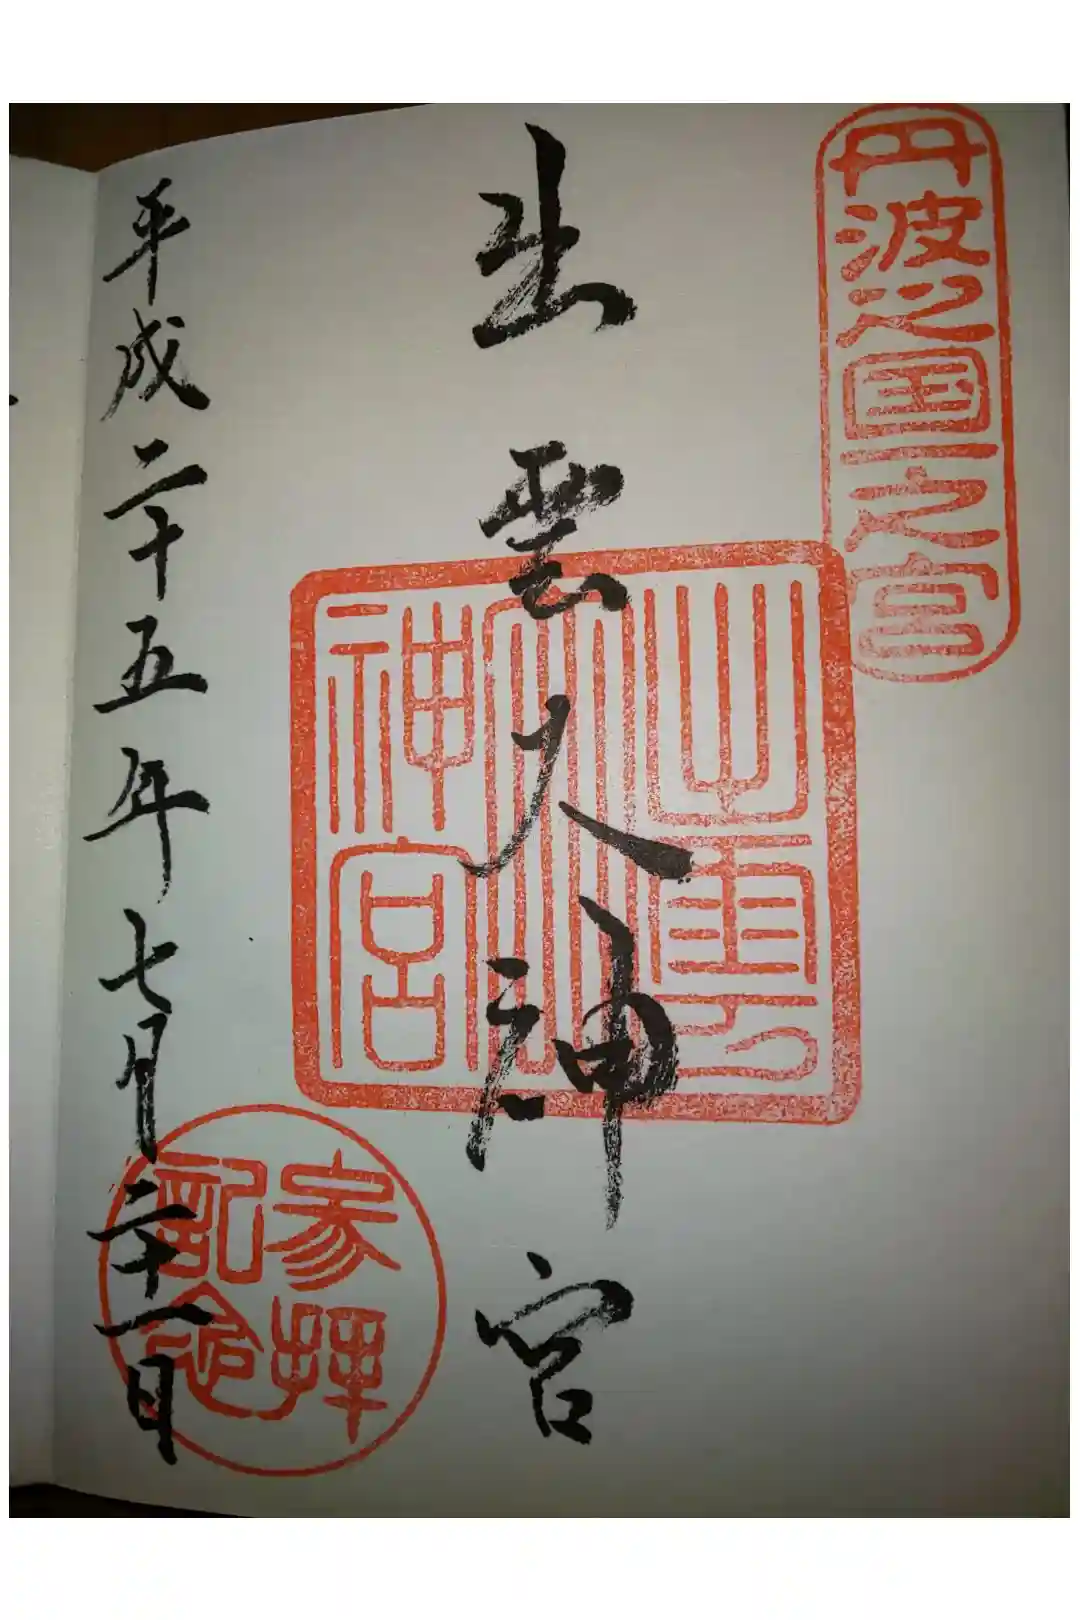 丹波之国一之宮
出雲大神宮
出雲
大
神宮
平成二十五年七月二十一日
参拝
記念